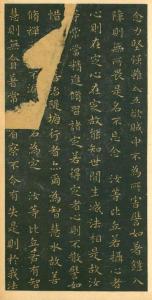 念力堅強雖入五欲賊中不為所害譬如著鎧入
陣則無所畏是名不忘念 汝等比丘若攝心者
心則在定心在定故能知世間生滅法相是故汝
等常當精進修習諸定若得定者心則不散譬如
惜隄塘行者亦爾為智慧水故善
脩禪名為定 汝等比丘若有智
慧則無貪著常省察不令有失是則於我法